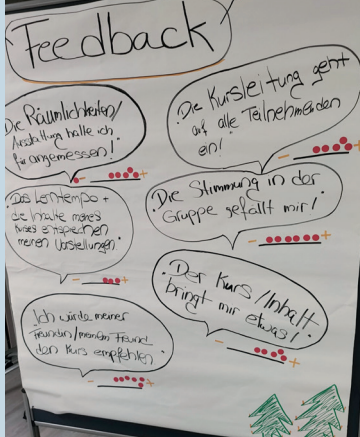 Feedback
Die Räumlichkeiten/
Ausstattung halte ich
für angemessen!
- +
Die Kursleitung geht
auf alle Teilnehmenden
ein!
- +
Das Lerntempo +
die Inhalte meines
Kurses entsprechen
meinen Vorstellungen.
- +
Die Stimmung in der
Gruppe gefällt mir!
- +
Ich würde meiner
Freundin/meinem Freund
den Kurs empfehlen.
- +
Der Kurs/Inhalt
bringt mir etwas!
- +